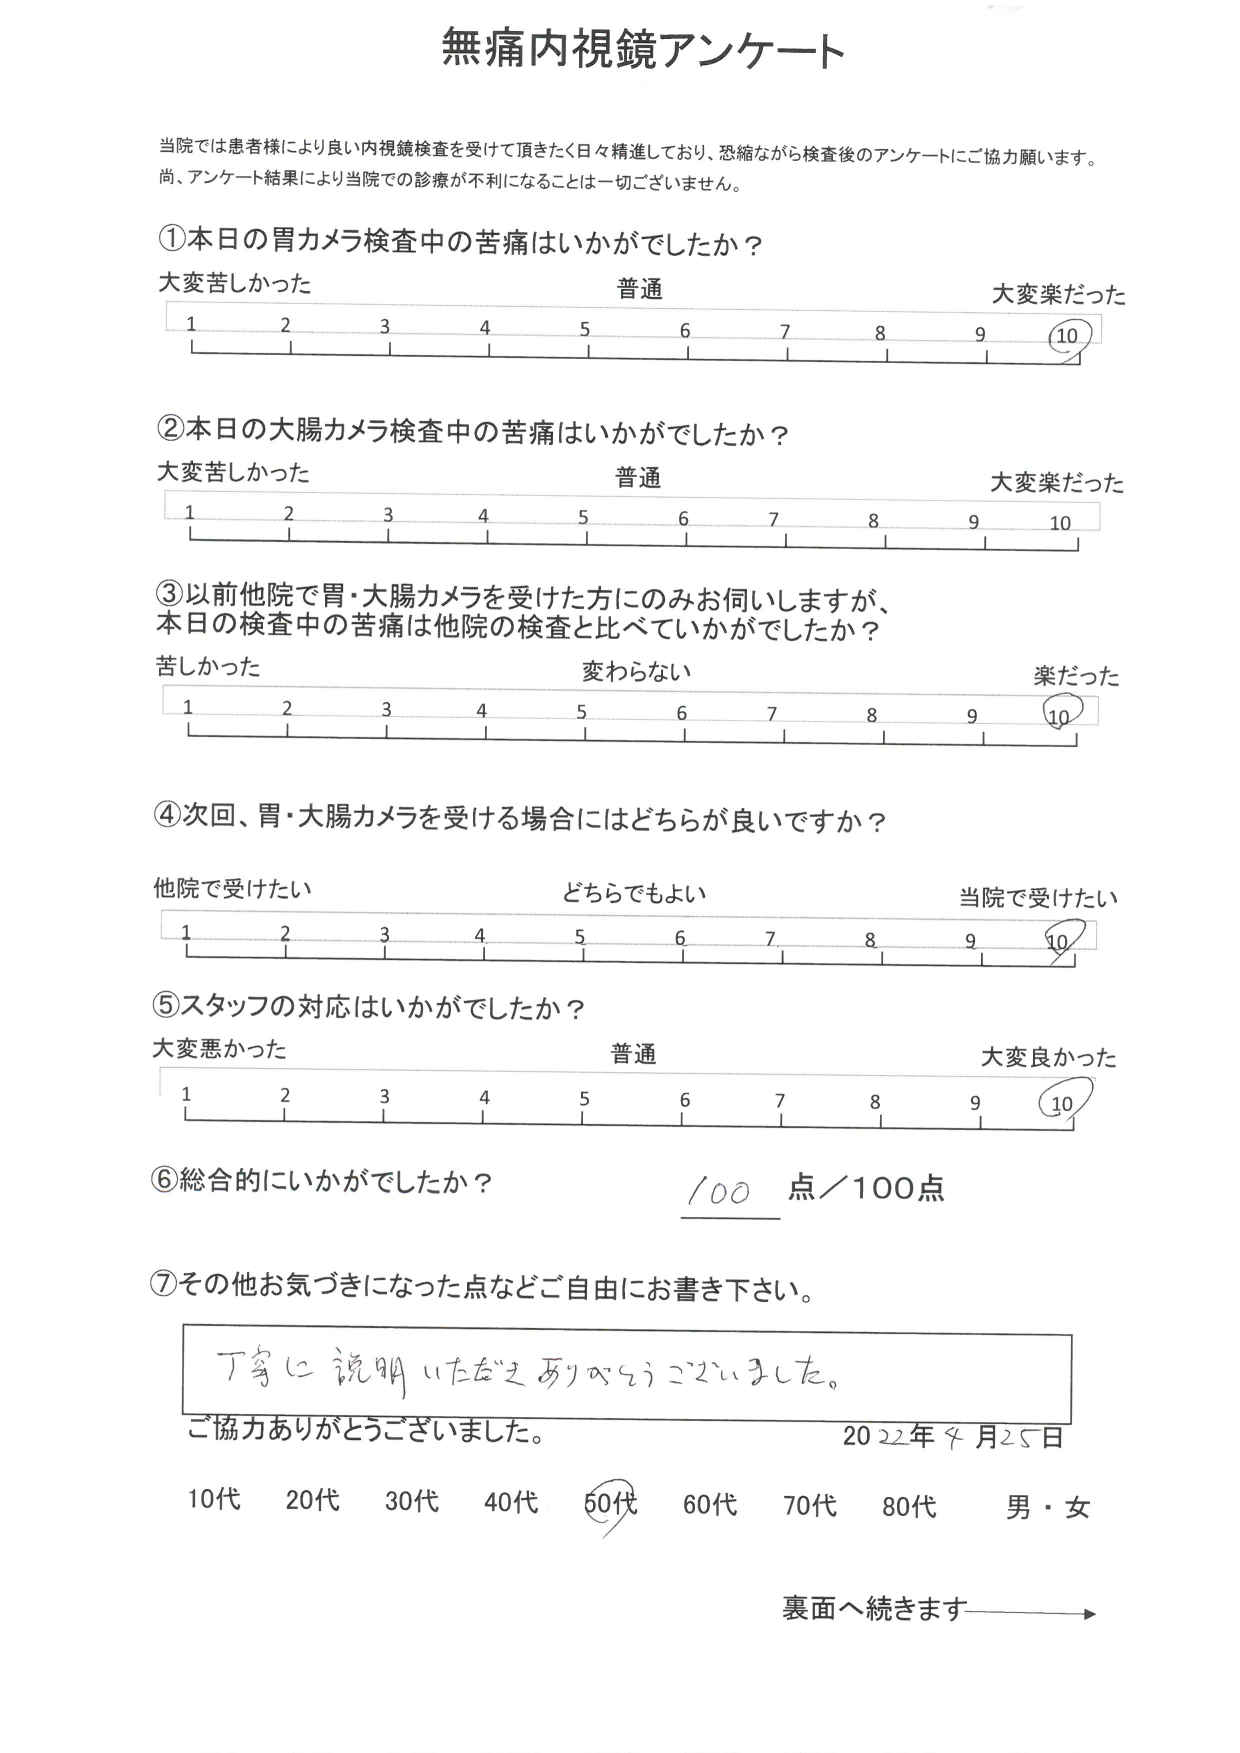 無痛内視鏡アンケート
当院では患者様により良い内視鏡検査を受けて頂きたく日々精進しており、恐縮ながら検査後のアンケートにご協力願います。
尚、アンケート結果により当院での診療が不利になることは一切ございません。
①本日の胃カメラ検査中の苦痛はいかがでしたか？
大変苦しかった 普通 大変楽だった
1 2 3 4 5 6 7 8 9 10
②本日の大腸カメラ検査中の苦痛はいかがでしたか？
大変苦しかった 普通 大変楽だった
1 2 3 4 5 6 7 8 9 10
③以前他院で胃・大腸カメラを受けた方にのみお伺いしますが、
本日の検査中の苦痛は他院の検査と比べていかがでしたか？
苦しかった 変わらない 楽だった
1 2 3 4 5 6 7 8 9 10
④次回、胃・大腸カメラを受ける場合にはどちらが良いですか？
他院で受けたい どちらでもよい 当院で受けたい
1 2 3 4 5 6 7 8 9 10
⑤スタッフの対応はいかがでしたか？
大変悪かった 普通 大変良かった
1 2 3 4 5 6 7 8 9 10
⑥総合的にいかがでしたか？ 100 点／100点
⑦その他お気づきになった点などご自由にお書き下さい。
丁寧に説明いただきありがとうございました。
ご協力ありがとうございました。 2022年4月25日
10代 20代 30代 40代 50代 60代 70代 80代 男・女
裏面へ続きます